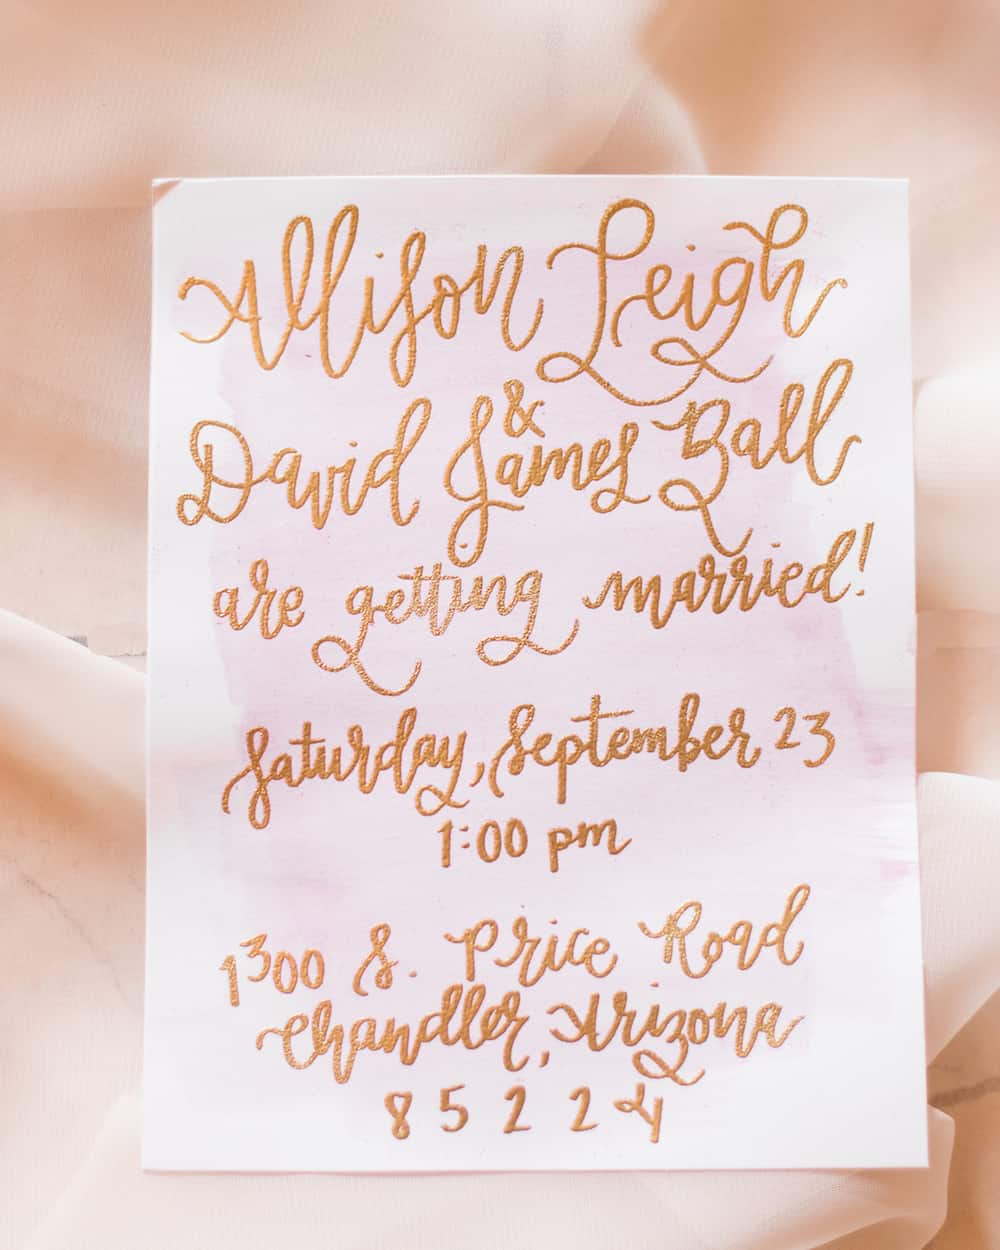 Allison Leigh
&
David James Ball
are getting married!
Saturday, September 23
1:00 pm
1300 S. Price Road
Chandler, Arizona
85224